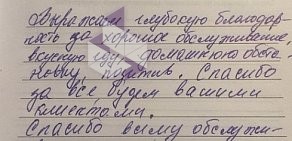 Выражаем глубокую благодар-
ность за хорошее обслуживание,
вкусную еду, домашнюю обста-
новку, позитив. Спасибо
за все будем вашими
клиентами.
Спасибо всему обслужи-